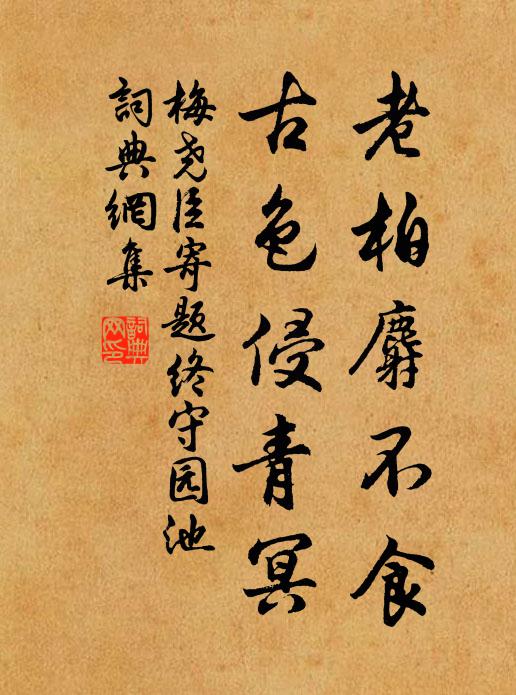 老柏麝不食
古色侵青冥
梅尧臣寄题终守园池
詞典網集
詞典网印